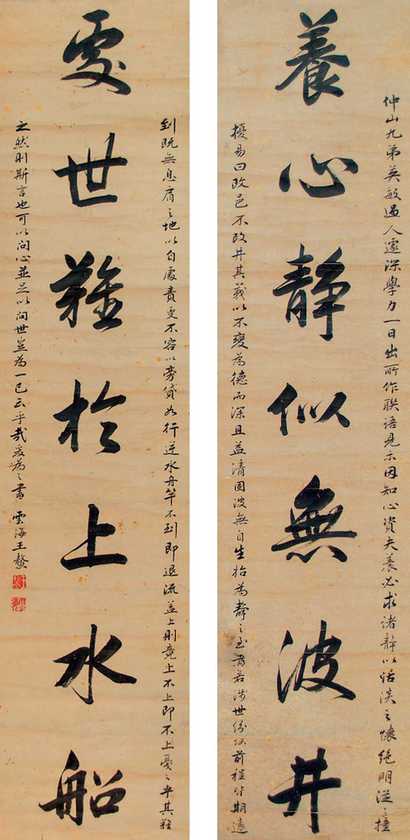 仲山九弟英敏過人邃深學力一日出所作聯語見示因知心資夫養必求諸靜以恬淡之懷絕朋從之憧
養心靜似無波井
擾易曰改邑不改井其義以不變為德而深且益清固波無自生始為靜之至焉若涉世紛前程期遠
到既無息肩之地以自處責更不容以旁貸如行逆水舟竿不到即退流蓋上則竟上不上即不上戛之乎其難
處世難於上水船
之然則斯言也可以問心並足以問世豈為一己云乎哉爰為之書 雲海王鰲